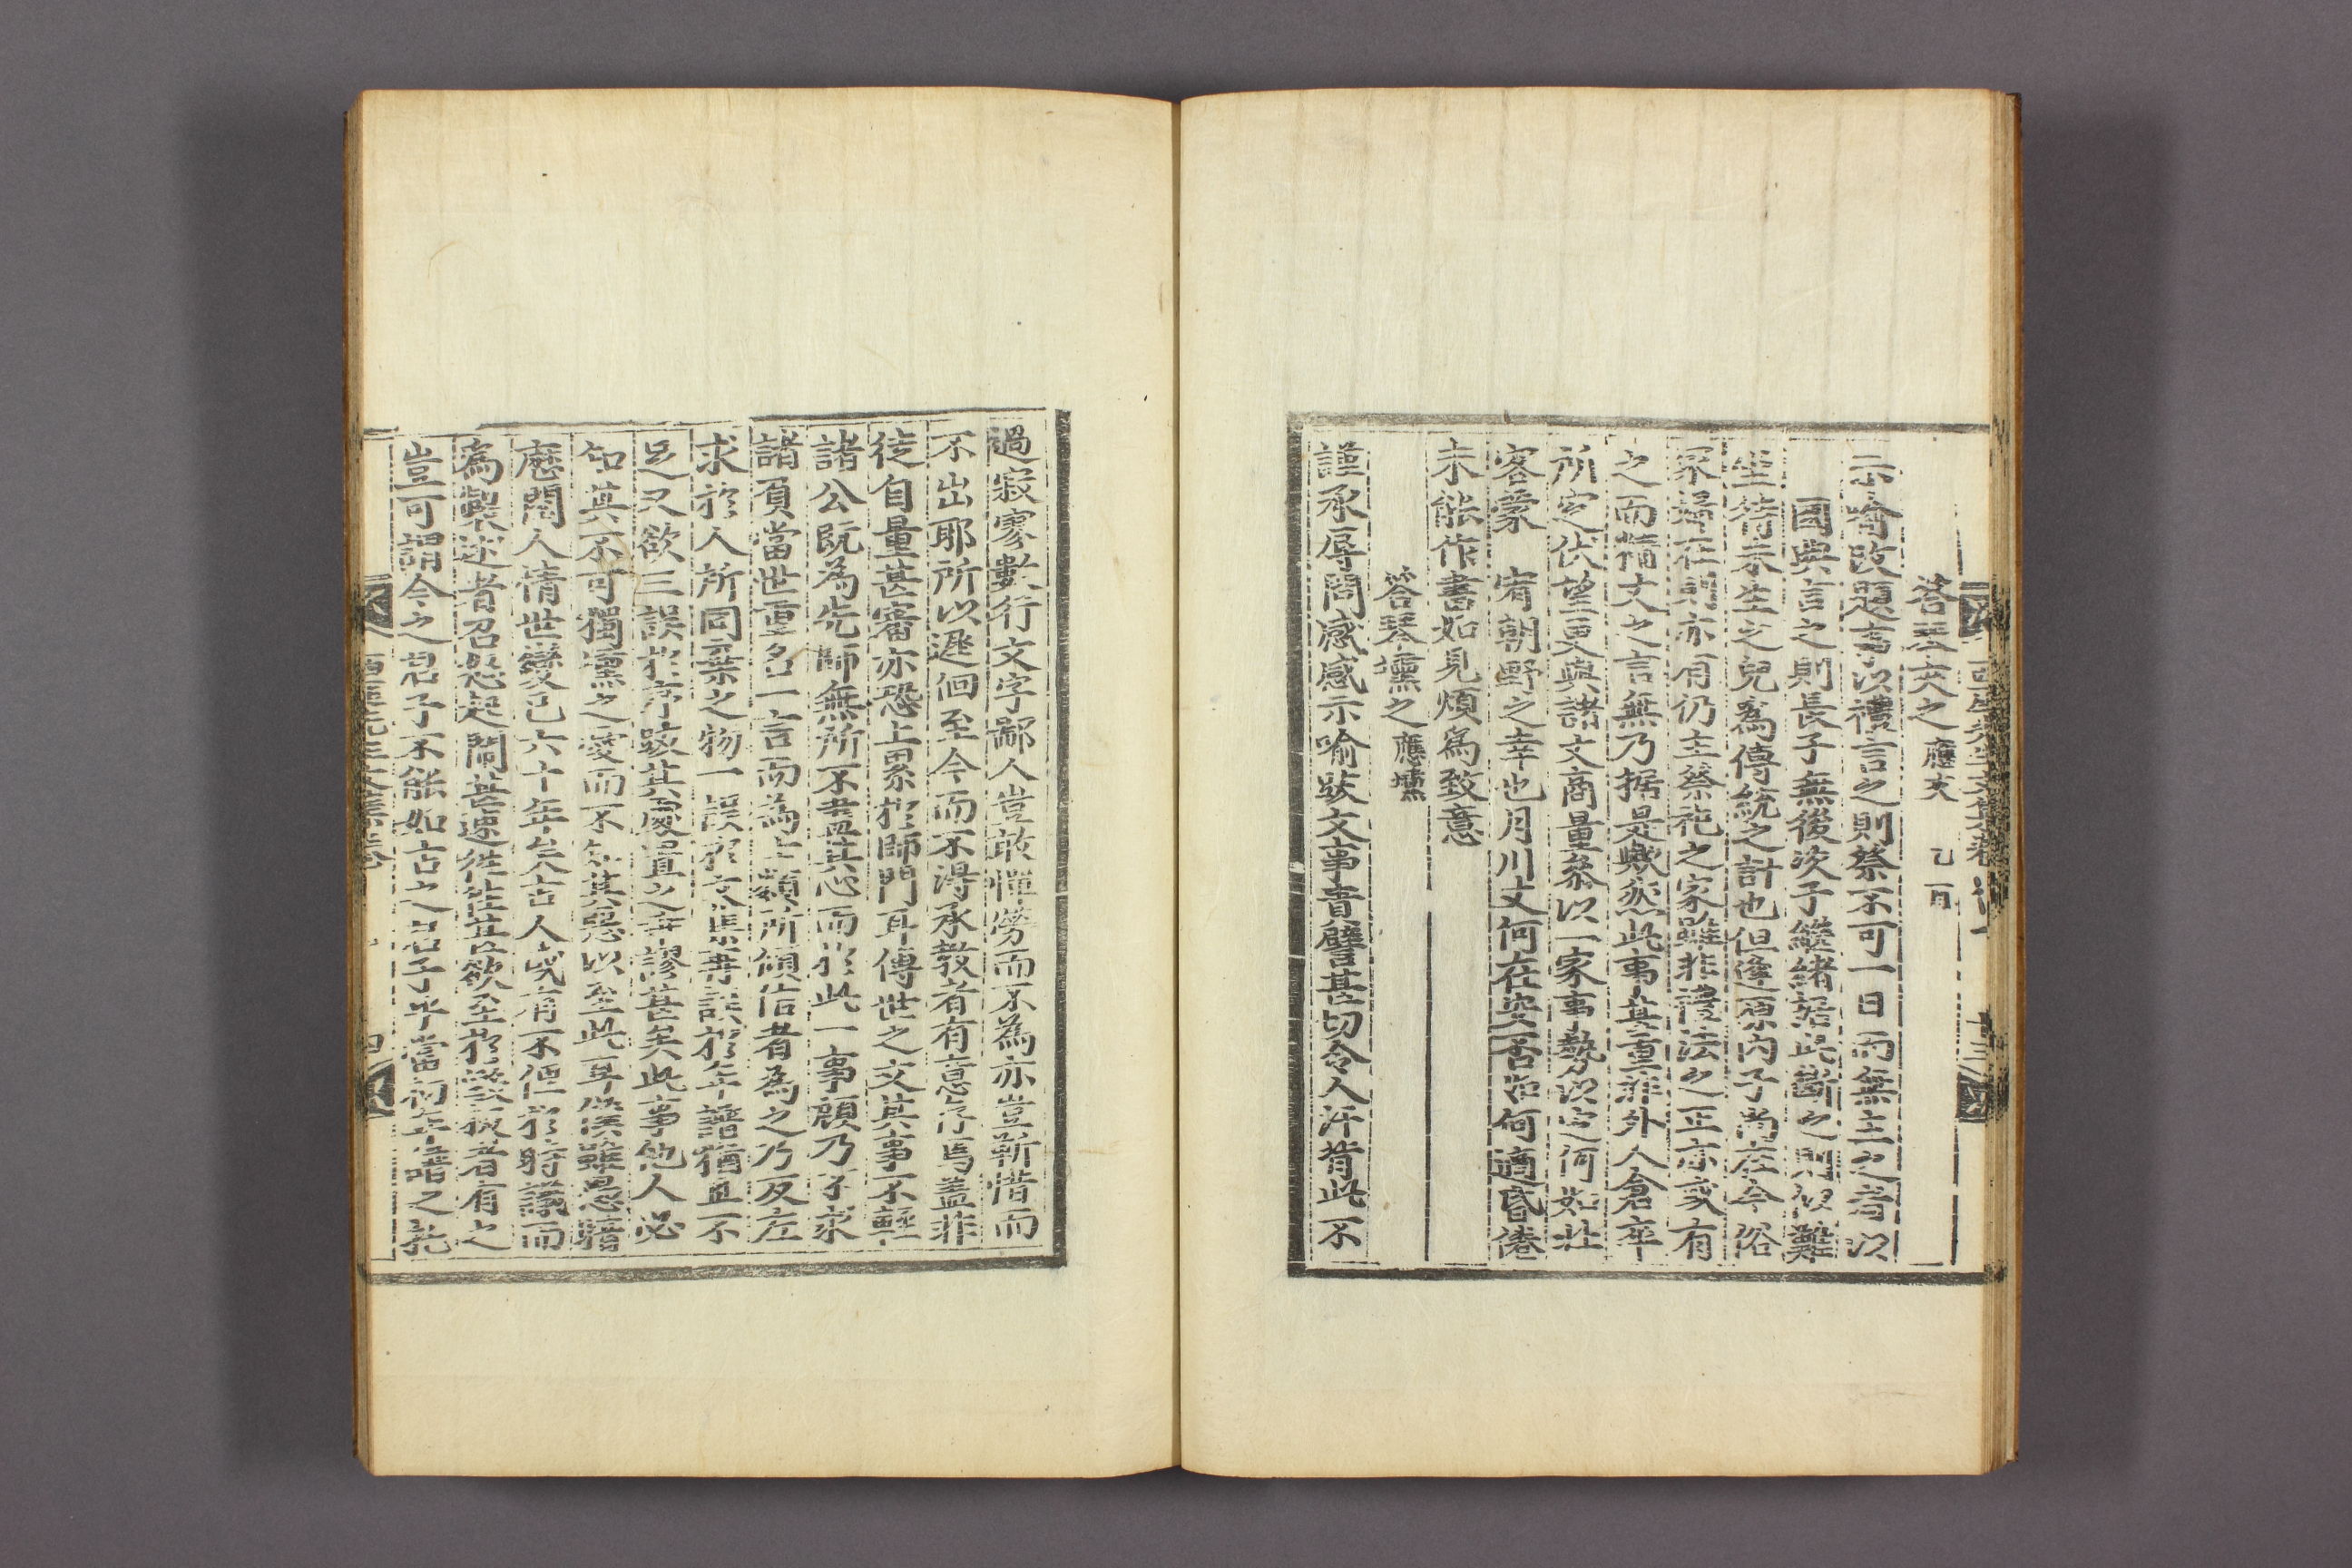 答琴夾之應夾
示喻改題事以禮言之則祭不可一日而無主之者以
國典言之則長子無後次子繼緖據此斷之則似難
坐待未生之兒爲傳統之計也但逢原內子尚在今俗
冢婦在則亦有仍主祭祀之家雖非禮法之正亦或有
之而精丈之言無乃据是歟然此事甚重非外人倉卒
所定伏望更與諸丈商量參以一家事勢以定何如壯
客蒙 宥朝野之幸也月川丈何在安否如何適昏倦
未能作書如見煩爲致意
答琴壎之應壎
謹承辱問感感示喻跋文事責譬甚切令人汗背此不
過寂寥數行文字鄙人豈敢憚勞而不為亦豈靳惜而
不出耶所以遲佪至今而不得承敎者有意存焉盖非
徒自量甚審亦恐上累於師門耳傳世之文其事不輕
諸公既為先師無所不盡其心而於此一事顧乃不求
諸負當世重名一言而為士類所傾信者為之乃反左
求於人所同棄之物一誤於文集再誤於年譜猶且不
足又欲三誤於序跋其處置之舛謬甚矣此事他人必
知其不可獨壎之愛而不知其惡以至此耳僕雖愚騃
應閱人情世變已六十年矣古人或有不但於將議而
為製述者召怨起鬧甚速往往其欲至於
豈可謂今之君子不能如古之君子乎當初年譜之死